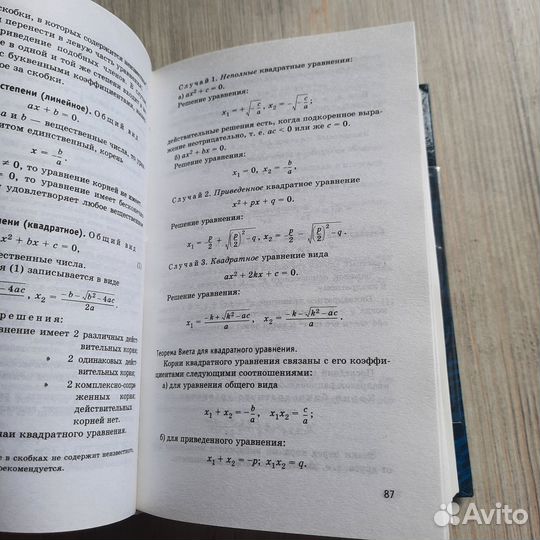 скобки, в которых содержится неизвестное
перенести в левую часть уравнения
приведение подобных членов.
е в одной и той же степени. В том
с буквенными коэффициентами,
ое за скобки.
степени (линейное). Общий вид
ax + b = 0.
a и b — вещественные числа, то
этом единственный, корень
x = b/a.
≠ 0, то уравнение корней не имеет
0, то уравнение имеет бесконечно
удовлетворяет любое вещественное
пени (квадратное). Общий вид
x² + bx + c = 0, (1)
щественные числа.
я (1) записывается в виде
−4ac, x₂ = (−b − √(b² − 4ac))/2a.
решения:
внение имеет • 2 различных дейст-
вительных корня;
• 2 одинаковых дейст-
вительных корня;
• 2 комплексно-сопря-
женных корня;
действительных
корней нет.
чаи квадратного уравнения.
е в скобках не содержит неизвестного,
рекомендуется.
Случай 1. Неполные квадратные уравнения:
а) ax² + c = 0.
Решение уравнения:
x₁ = +√(−c/a), x₂ = −√(−c/a);
действительные решения есть, когда подкоренное выра-
жение неотрицательно, т. е. ac < 0 или же c = 0.
б) ax² + bx = 0.
Решение уравнения:
x₁ = 0, x₂ = −b/a.
Случай 2. Приведенное квадратное уравнение
x² + px + q = 0.
Решение уравнения:
x₁ = −p/2 + √((p/2)² − q), x₂ = −p/2 − √((p/2)² − q).
Случай 3. Квадратное уравнение вида
ax² + 2kx + c = 0.
Решение уравнения:
x₁ = (−k + √(k² − ac))/a, x₂ = (−k − √(k² − ac))/a.
Теорема Виета для квадратного уравнения.
Корни квадратного уравнения связаны с его коэффи-
циентами следующими соотношениями:
а) для уравнения общего вида
x₁ + x₂ = −b/a, x₁x₂ = c/a;
б) для приведенного уравнения:
x₁ + x₂ = −p; x₁x₂ = q.
87
Avito